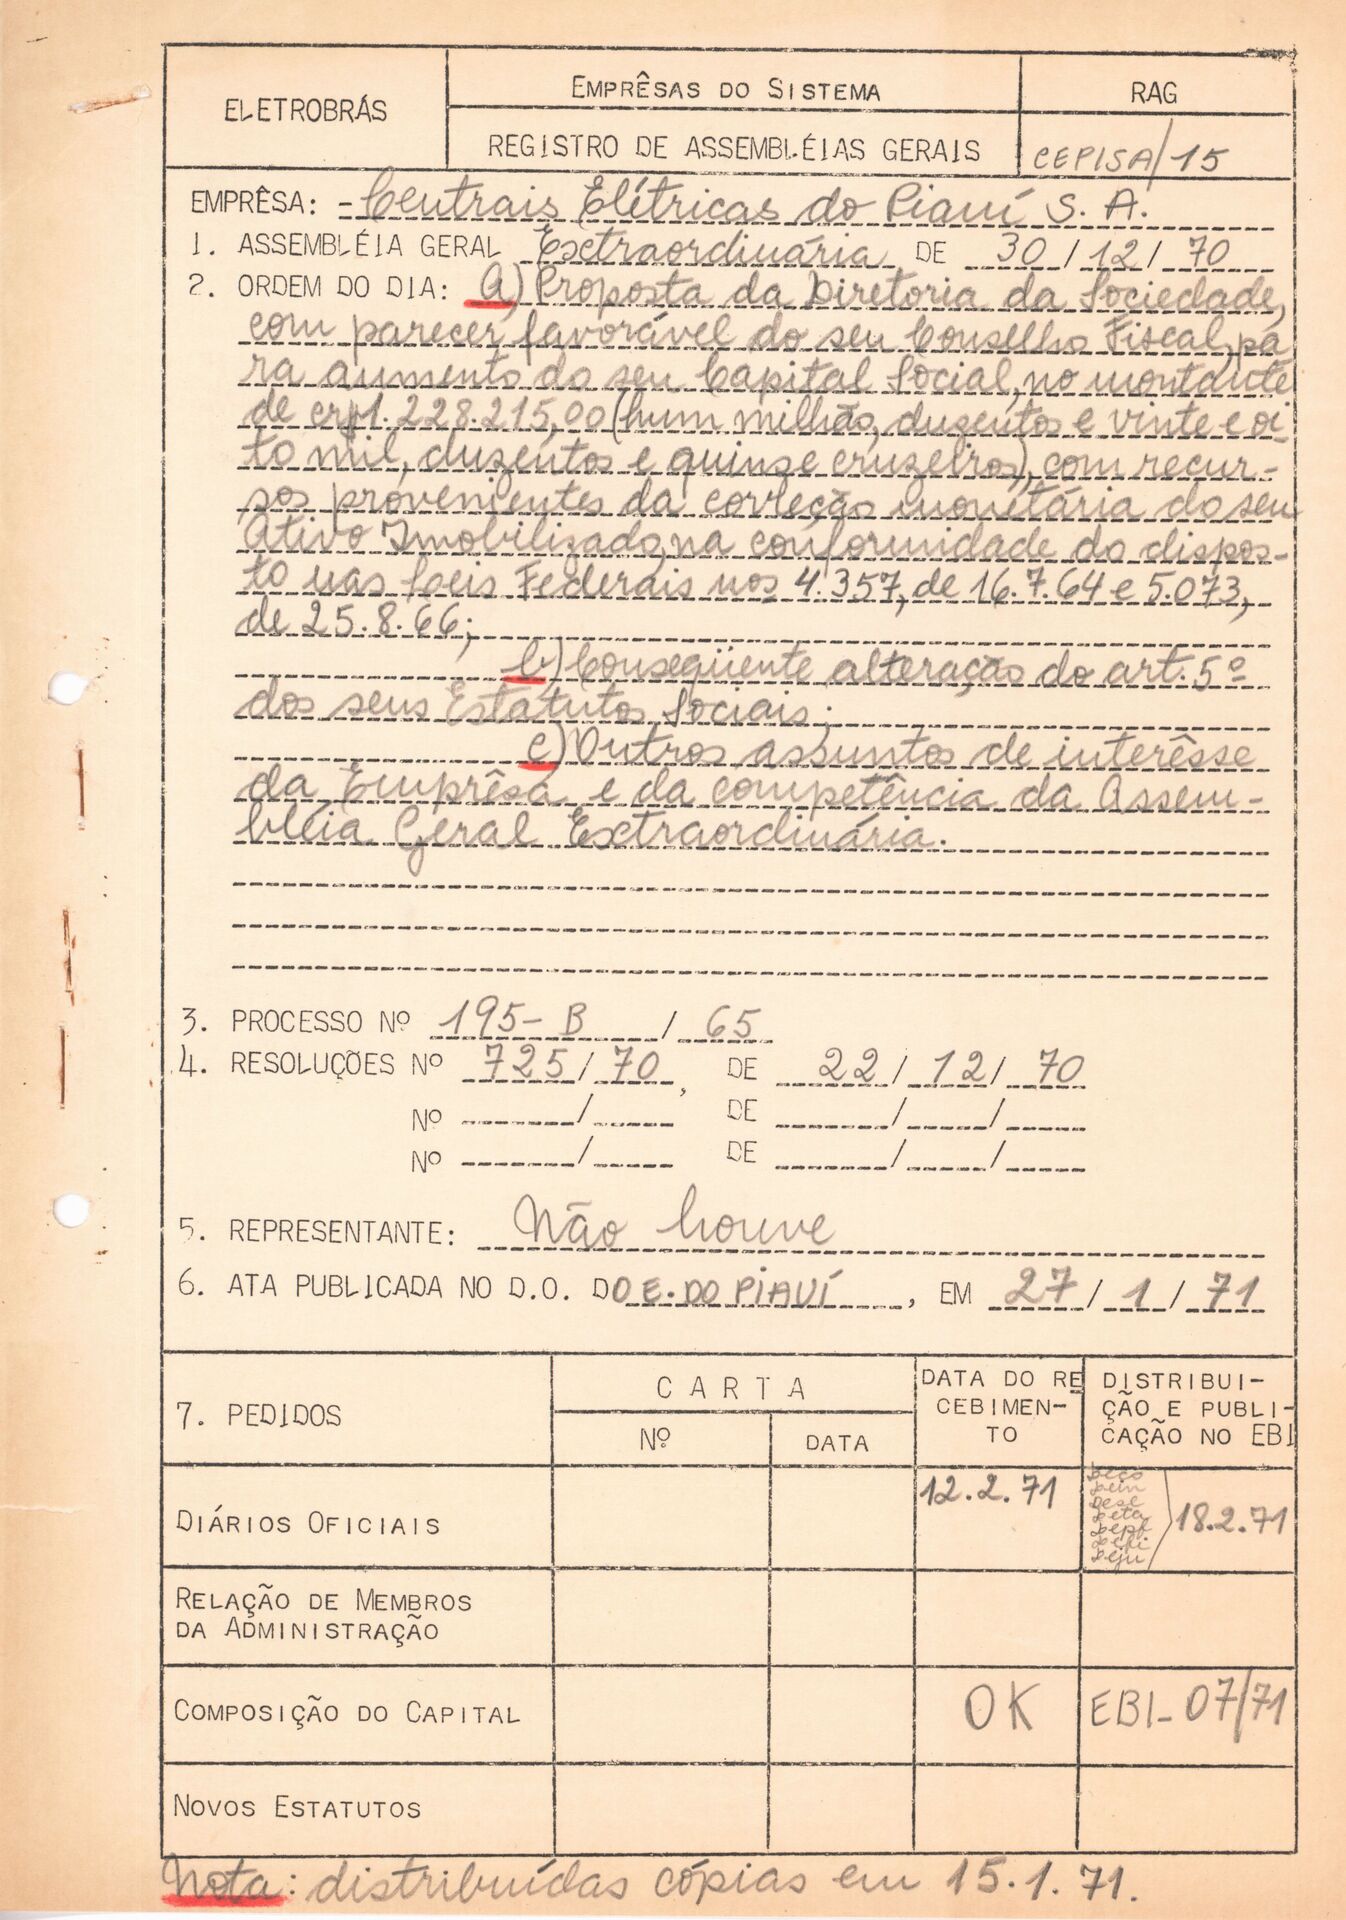 ELETROBRÁS
EMPRÊSAS DO SISTEMA
RAG
REGISTRO DE ASSEMBLÉIAS GERAIS
CEPISA/15
EMPRÊSA: - Centrais Elétricas do Piauí S. A.
1. ASSEMBLÉIA GERAL Extraordinária DE 30/12/70
2. ORDEM DO DIA: a) Proposta da Diretoria da Sociedade,
com parecer favorável do seu Conselho Fiscal, pa
ra aumento do seu Capital Social, no montante
de cr$1.228.215,00 (hum milhão, duzentos e vinte e oi-
to mil, duzentos e quinze cruzeiros), com recur-
sos provenientes da correção monetária do seu
Ativo Imobilizado, na conformidade do dispos-
to nas Leis Federais nos 4.357, de 16.7.64 e 5.073,
de 25.8.66;
b) Conseqüente alteração do art. 5º
dos seus Estatutos Sociais;
c) Outros assuntos de interêsse
da Emprêsa e da competência da Assem-
bléia Geral Extraordinária.
3. PROCESSO Nº 195-B / 65
4. RESOLUÇÕES Nº 725/70, DE 22/12/70
Nº / DE / /
Nº / DE / /
5. REPRESENTANTE: Não houve
6. ATA PUBLICADA NO D.O. DO E. DO PIAUÍ, EM 27/1/71
7. PEDIDOS
CARTA
Nº
DATA
DATA DO RE
CEBIMEN-
TO
DISTRIBUI-
ÇÃO E PUBLI-
CAÇÃO NO EBI
DIÁRIOS OFICIAIS
12.2.71
18.2.71
RELAÇÃO DE MEMBROS
DA ADMINISTRAÇÃO
COMPOSIÇÃO DO CAPITAL
OK
EBI-07/71
NOVOS ESTATUTOS
Nota: distribuídas cópias em 15.1.71.